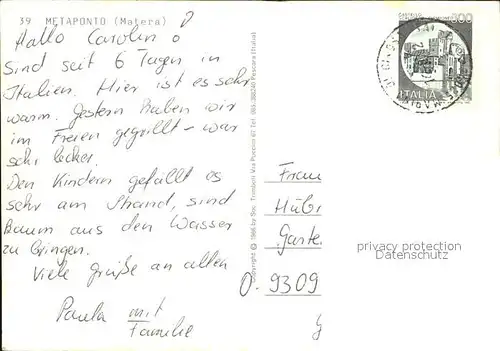 39 METAPONTO (Matera)
Hallo Carolin o
Sind seit 6 Tagen in
Italien. Hier ist es sehr
warm. Gestern haben wir
im Freien gegrillt - war
sehr lecker.
Den Kindern gefällt es
sehr am Strand, sind
kaum aus den Wasser
zu bringen.
Viele grüße an allen
Paula mit
Familie
Copyright © 1986 by Soc. Trimboli, Via Puccini 61 Tel. Pescara (Italia)
ITALIA
Frau
Hübn
Garte
O-9309
privacy protection
Datenschutz